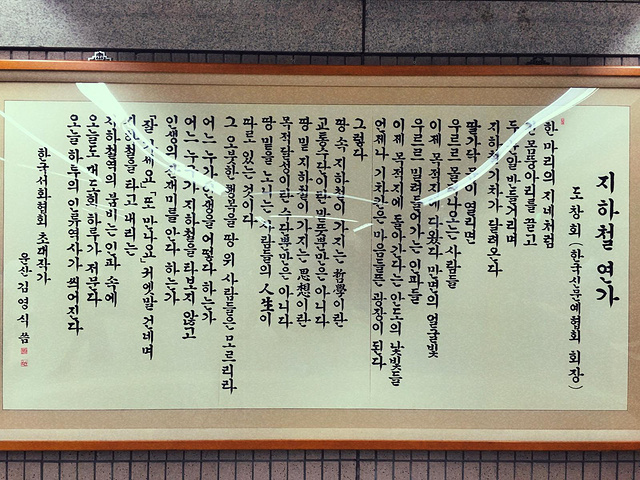 지하철 연가
도창회 (한국신문예협회 회장)
한 마리의 지네처럼
몸뚱아리를 끌고
두 알 반들거리며
지하철 기차가 달려온다
딸가닥 문이 열리면
우르르 몰려나오는 사람들
이제 목적지에 다 왔다 만면의 얼굴빛
우르르 밀려들어가는 인파들
이제 목적지에 돌아간다는 안도의 낯빛들
언제나 기차간은 마음 나눌 광장이 된다
그렇다
땅 속 지하철이 가지는 哲學이란
교통수단이란 발품뿐만은 아니다
땅 밑 지하철이 가지는 思想이란
목적달성이란 수단뿐만은 아니다
땅 밑을 누비는 사람들의 人生이
따로 있는 것이다
그 오붓한 행복을 땅 위 사람들은 모르리라
어느 누가 인생을 어떻다 하는가
어느 누구가 지하철을 타보지 않고
인생의 잔재미를 안다 하는가
잘 가세요 또 만나요 커엣말 건네며
지하철을 타고 내리는
지하철역의 붐비는 인파 속에
오늘도 매도회 하루가 저문다
오늘 하루의 인류역사가 씌어진다
한국서화협회 초대작가
운산 김영식 씀